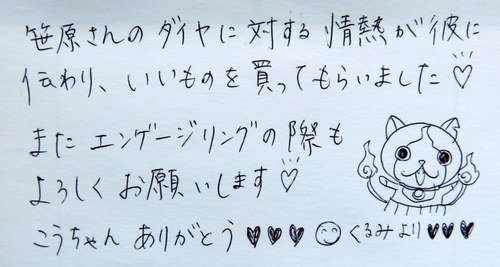 笹原さんのダイヤに対する情熱が彼に
伝わり、いいものを買ってもらいました♡
またエンゲージリングの際も
よろしくお願いします♡
こうちゃんありがとう♥♥♥☺くるみより♥♥♥